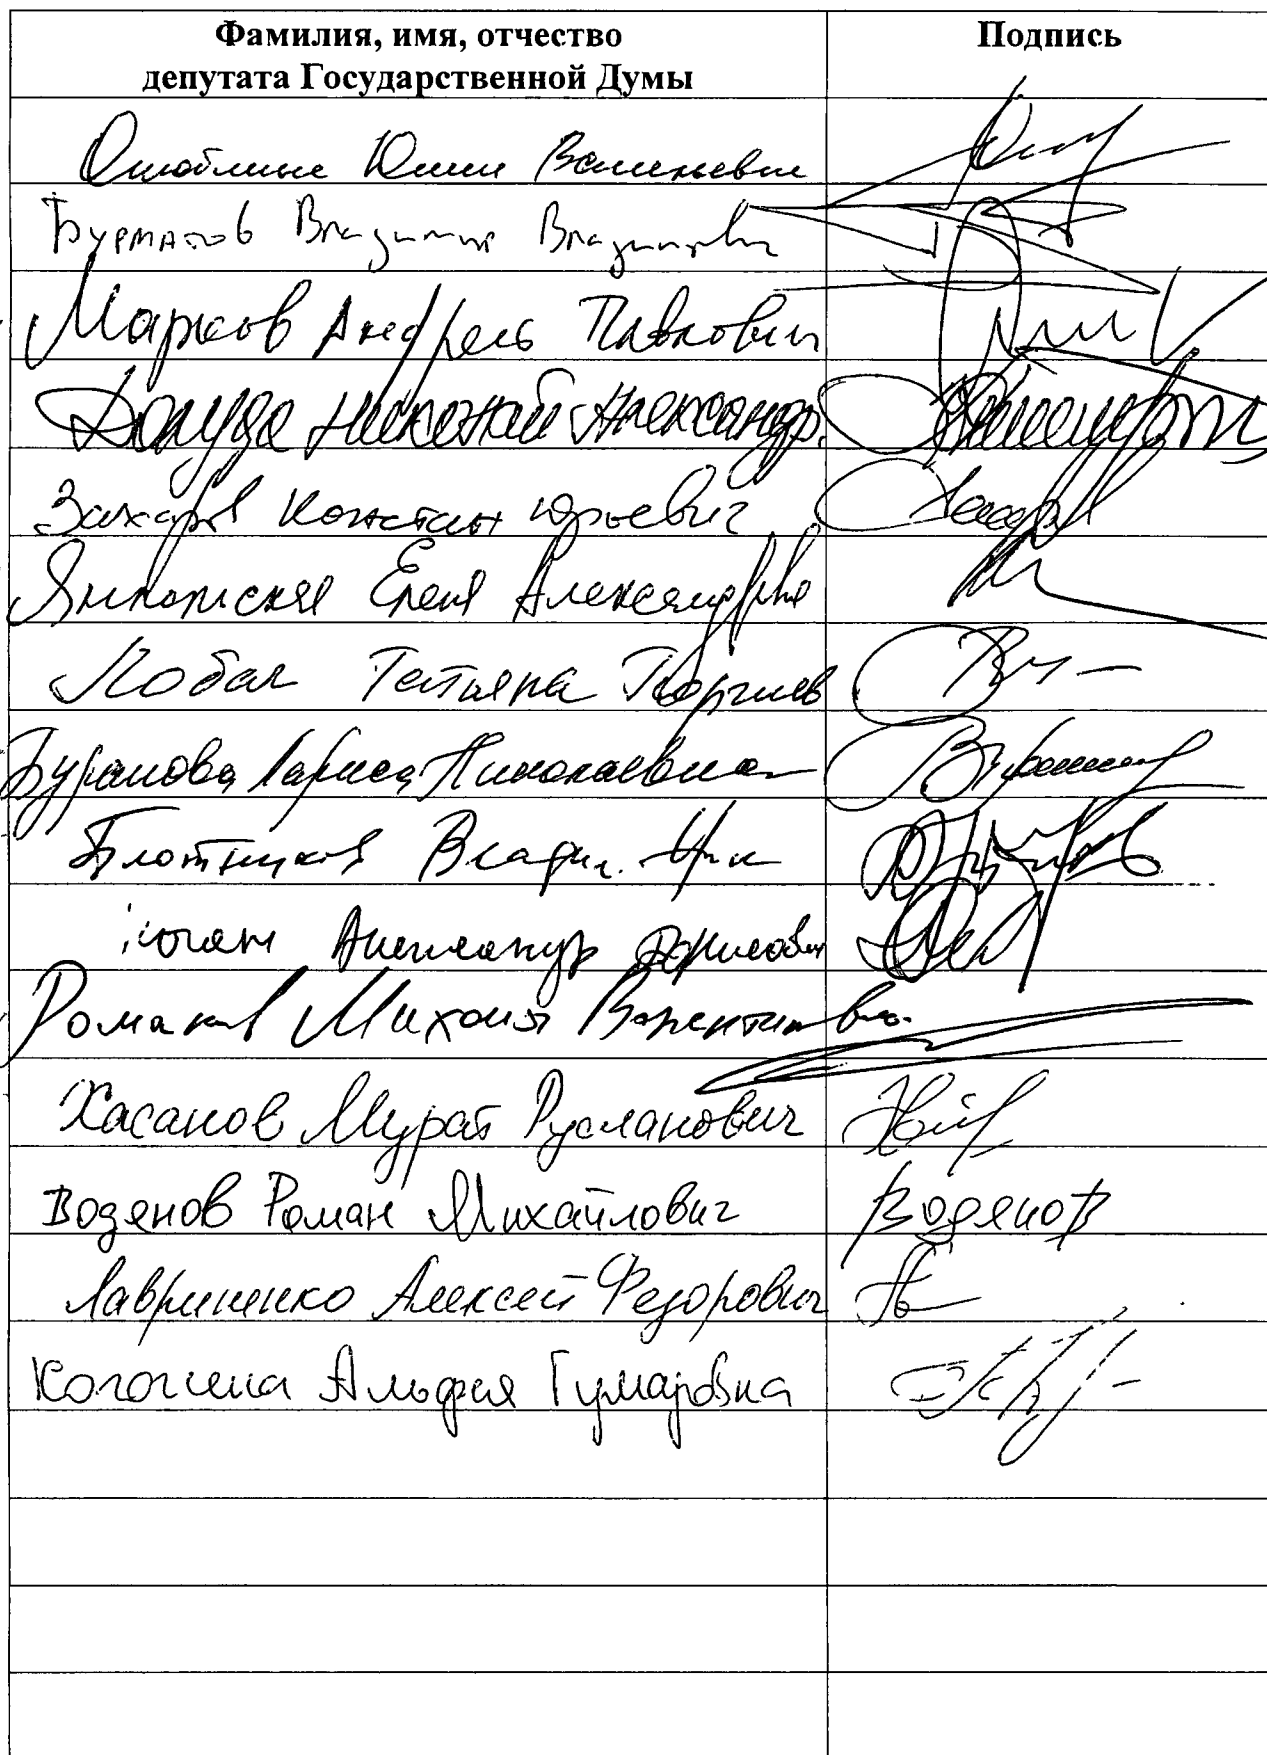 Фамилия, имя, отчество Подпись
депутата Государственной Думы
Бурматов Владимир Владимирович
Марков Андрей Павлович
Долуда Николай Александр.
Захаров Констант Юрьевич
Ямпольская Елена Александровна
Лобач Татьяна Георгиев
Буранова Лариса Николаевна
Плотников Владим.
Александр Борисович
Романов Михаил Валентинович
Хасанов Мурат Русланович
Водянов Роман Михайлович Водянов
Лавриненко Алексей Федорович
Когогина Альфия Гумаровна